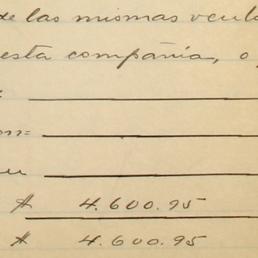 de las mismas
esta compañía, o
on=
$ 4.600.95
$ 4.600.95